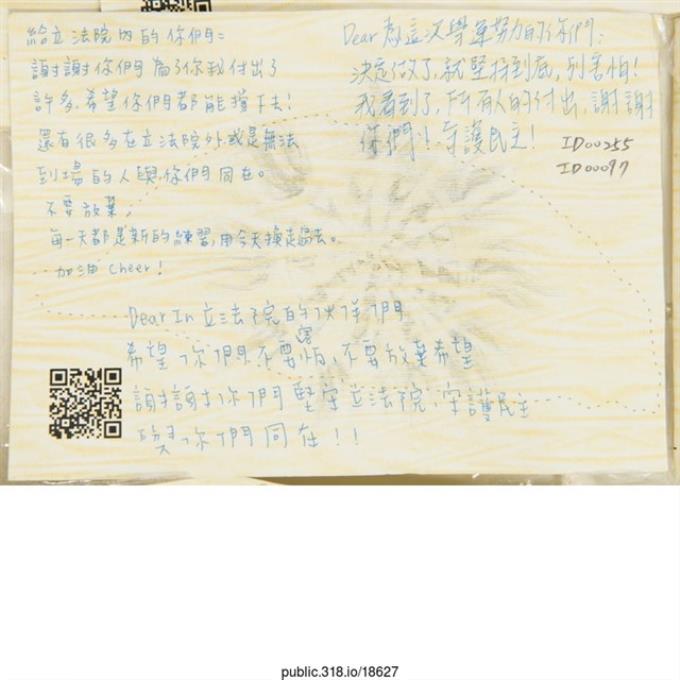 給立法院內的你們：
謝謝你們為了你我付出了
許多，希望你們都能撐下去！
還有很多在立法院外或是無法
到場的人與你們同在。
不要放棄，
每一天都是新的練習，用今天換走過去。
加油 cheer！
Dear 為這次學運努力的你們：
決定做了，就堅持到底，別害怕！
我看到了，所有人的付出，謝謝
你們！守護民主！
ID00255
ID00097
Dear In 立法院的伙伴們
希望你們不要害怕、不要放棄希望
謝謝你們堅守立法院、守護民主
與你們同在！！
public.318.io/18627